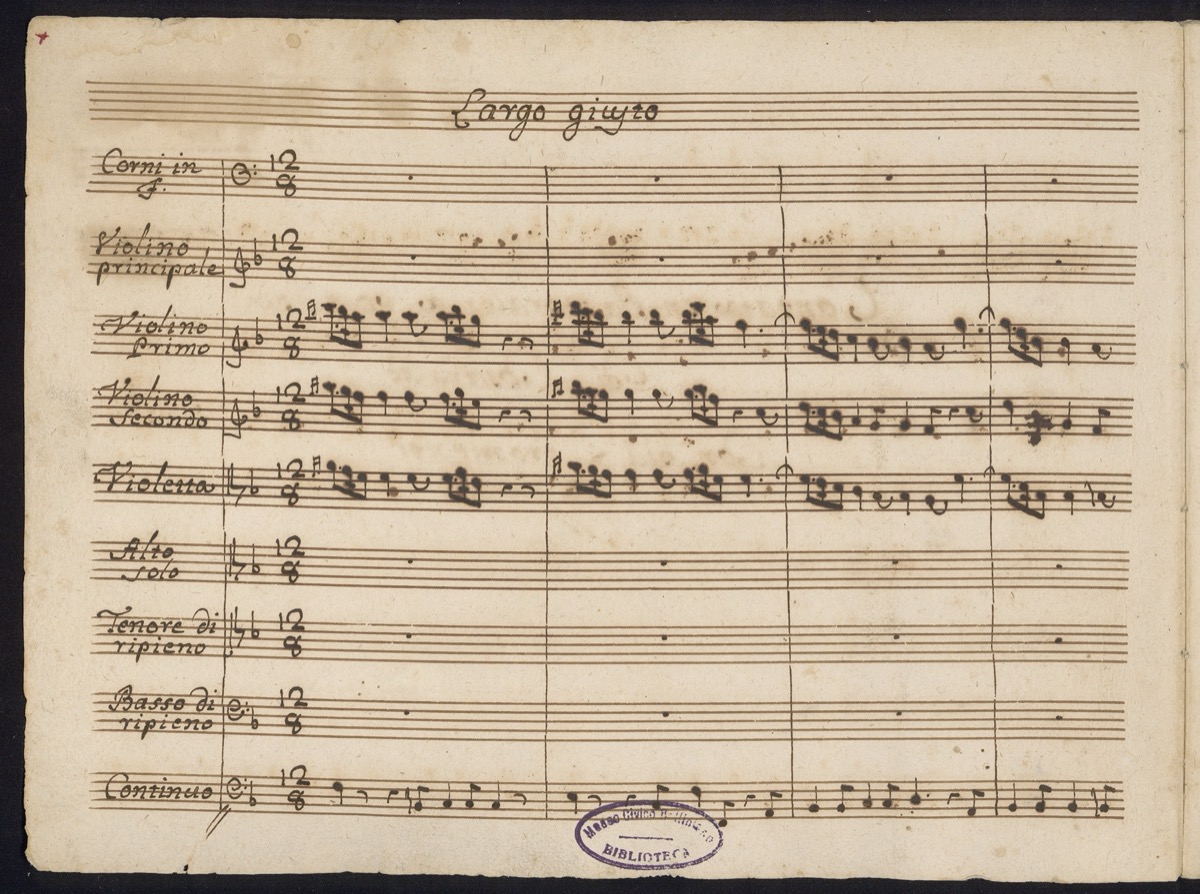 Largo giusto
Corni in
F.
12
8
Violino
principale
12
8
Violino
Primo
12
8
Violino
Secondo
12
8
Violetta
12
8
Alto
solo
12
8
Tenore di
ripieno
12
8
Basso di
ripieno
12
8
Continuo
12
8
Museo Civico
BIBLIOTECA